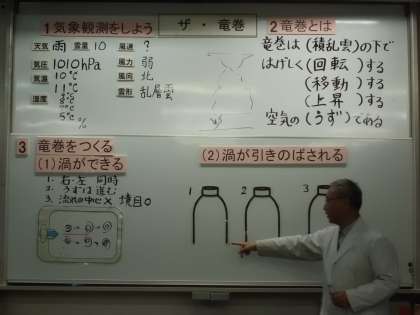 ザ・竜巻
1 気象観測をしよう
天気 雨 雲量 10 風速 ?
気圧 1010hPa 風力 弱
気温 10℃ 風向 北
11℃ 雲形 乱層雲
湿度
5℃
%
2 竜巻とは
竜巻は(積乱雲)の下で
はげしく(回転)する
(移動)する
(上昇)する
空気の(うず)である
3 竜巻をつくる
(1)渦ができる
1. 右・左 同時
2. うずは進む
3. 流れの中心× 境目○
(2)渦が引きのばされる
1 2 3